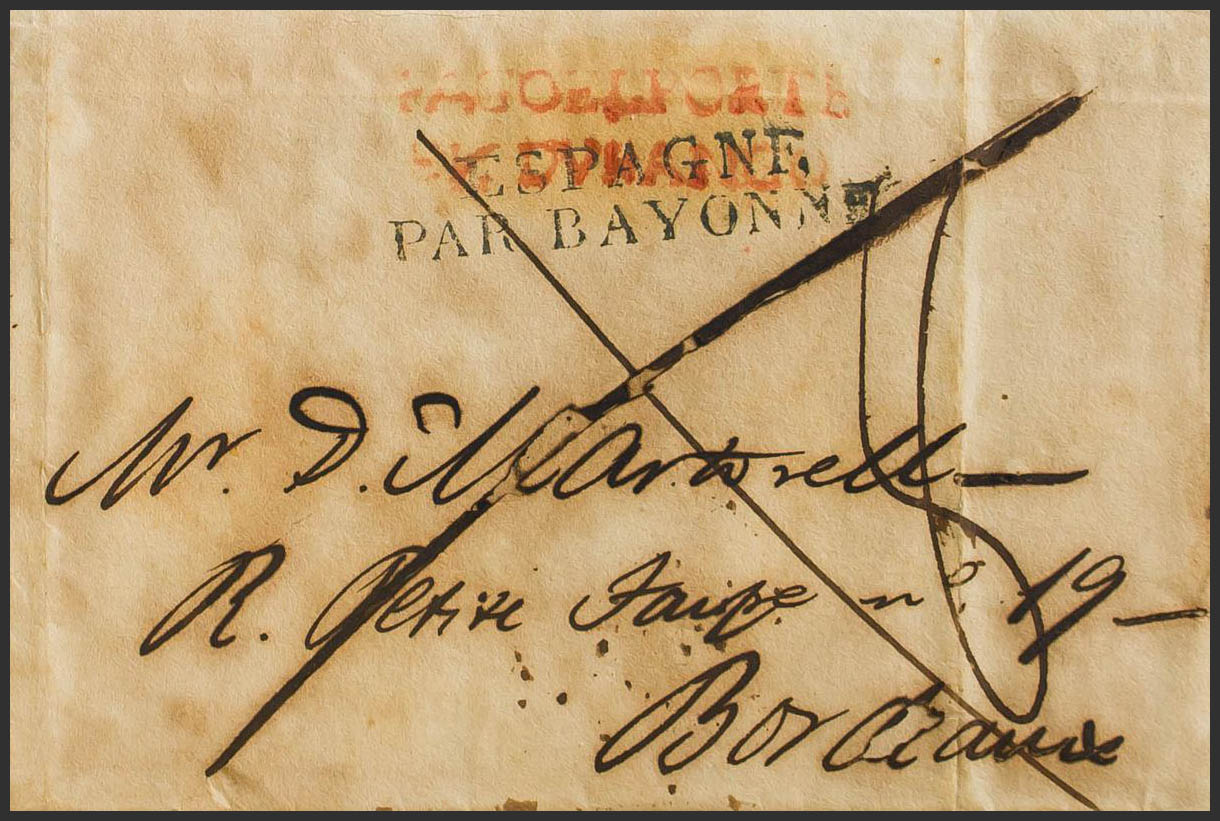 ESPAGNE
PAR BAYONNE
Mr. D. Martorell
R. Petite Taupe nº. 19
Bordeaux